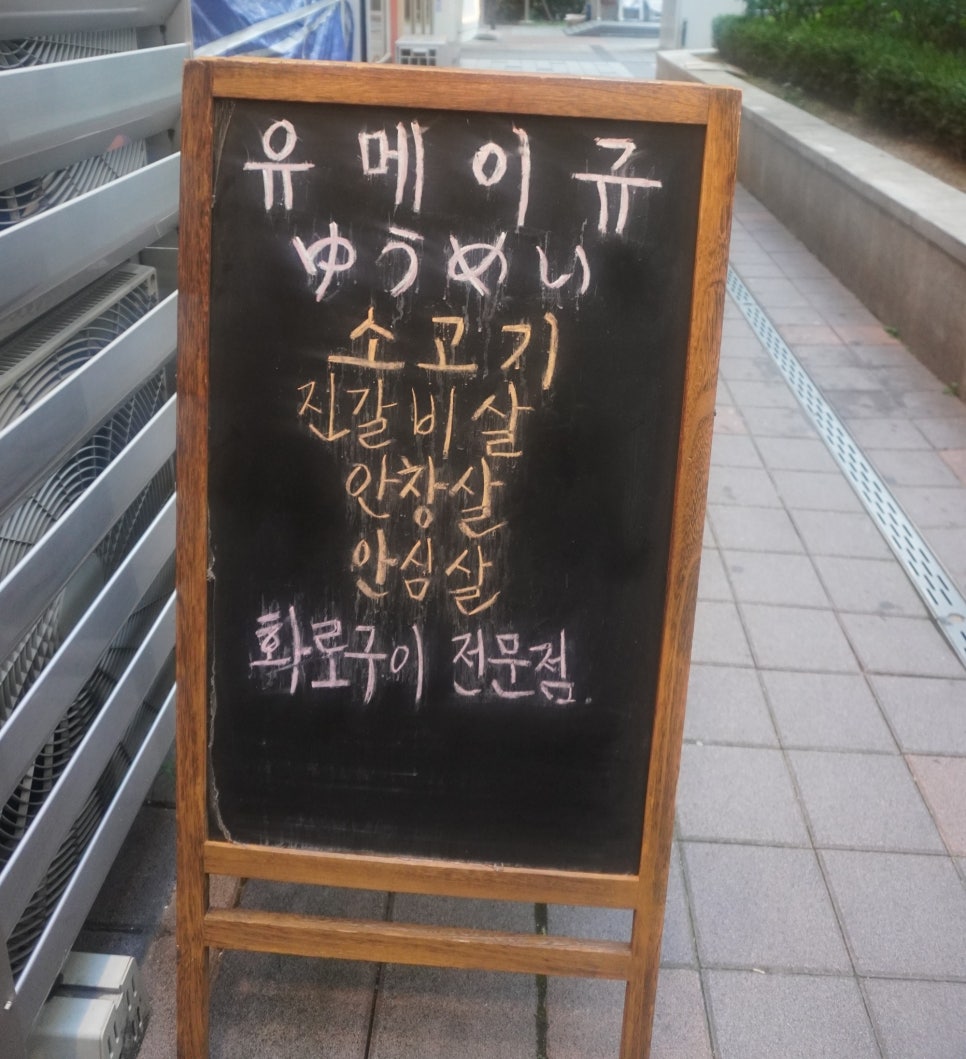 유메이규
ゆうめい
소고기
진갈비살
안창살
안심살
화로구이 전문점.